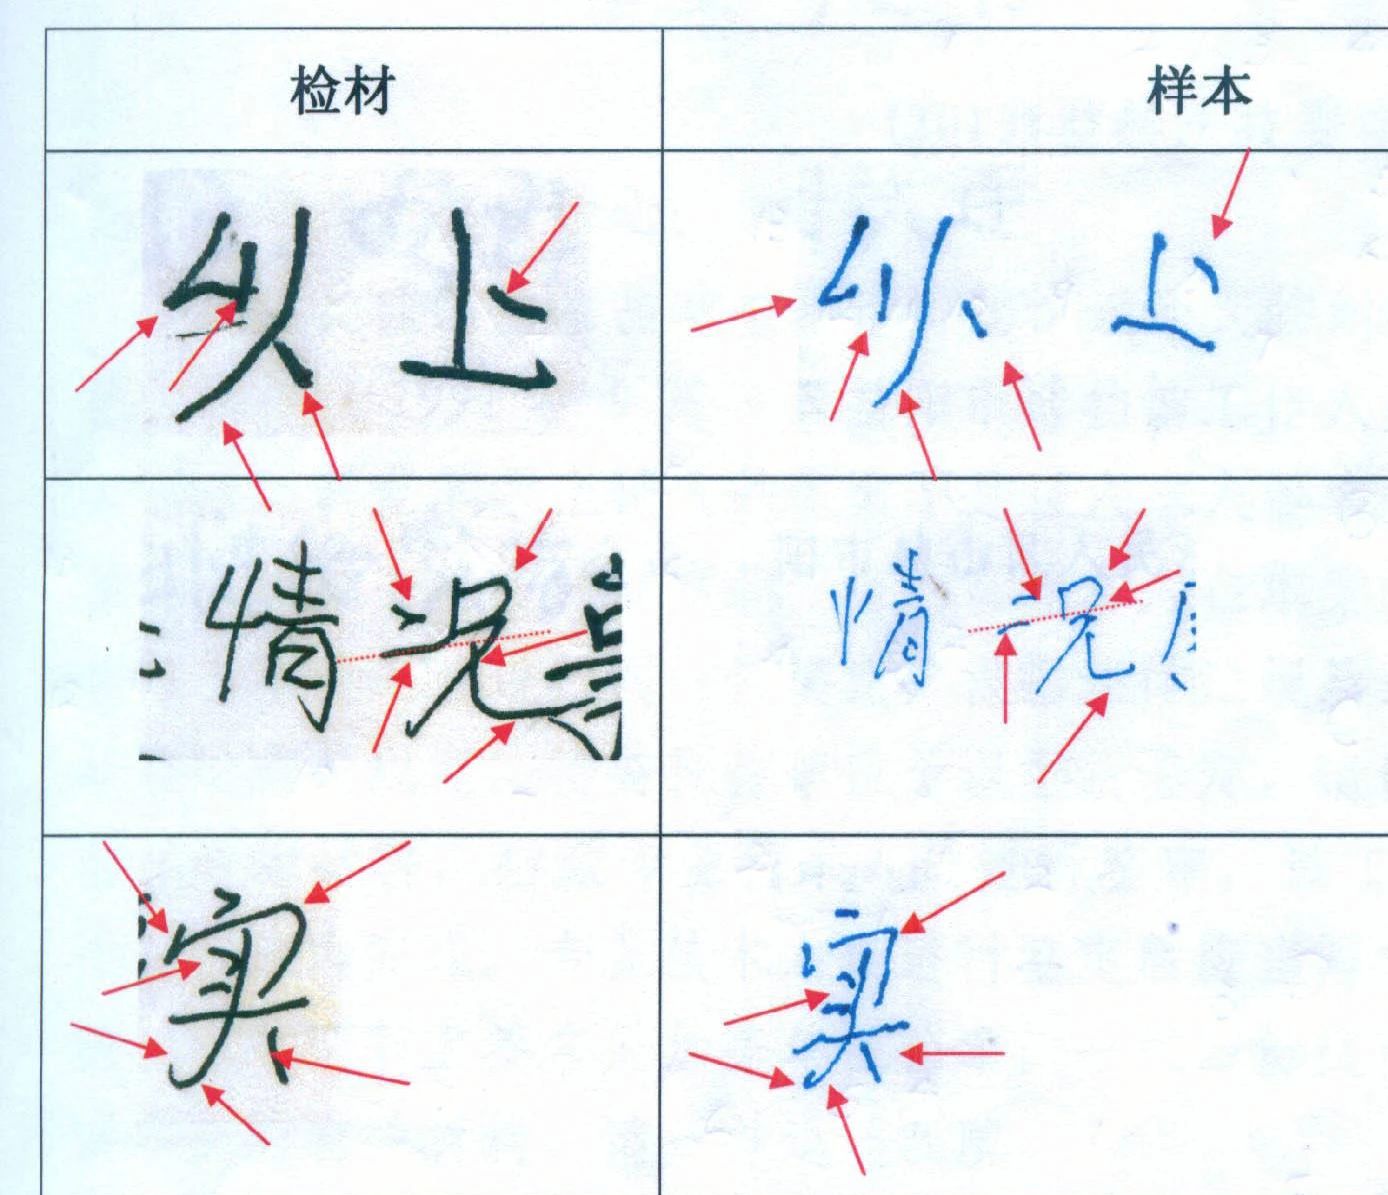 检材 样本
以上 以上
情况 情况
实 实